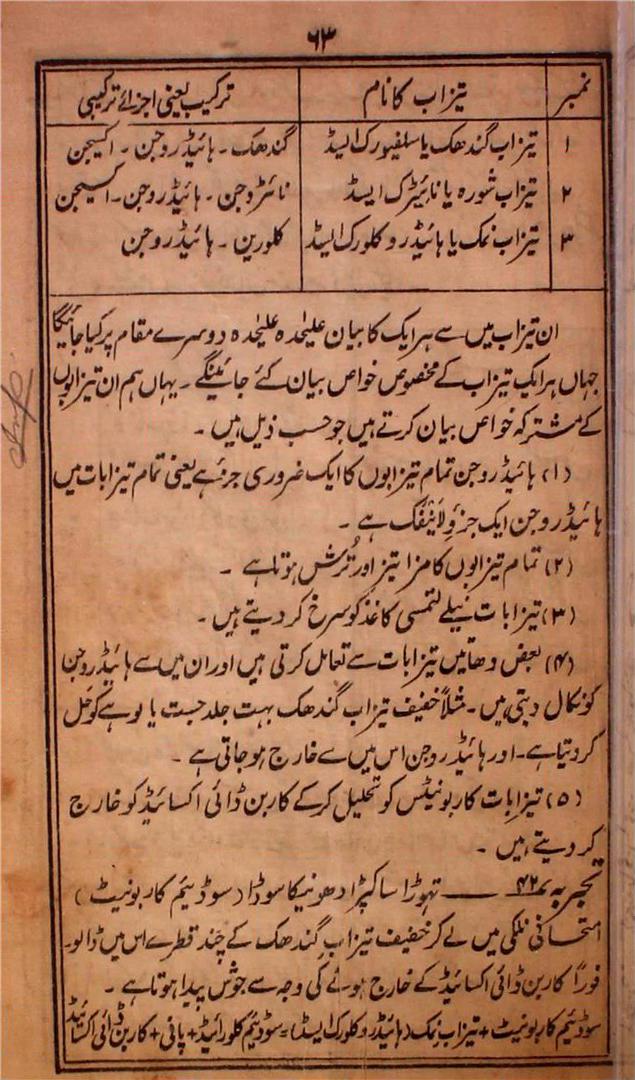 ۶۳
نمبر	تیزاب کا نام	ترکیب یعنی اجزائے ترکیبی
۱	تیزاب گندھک یا سلفیورک ایسڈ	گندھک ۔ ہائیڈروجن ۔ آکسیجن
۲	تیزاب شورہ یا نائیٹرک ایسڈ	نائٹروجن ۔ ہائیڈروجن ۔ آکسیجن
۳	تیزاب نمک یا ہائیڈروکلورک ایسڈ	کلورین ۔ ہائیڈروجن
ان تیزاب میں سے ہر ایک کا بیان علیحدہ علیحدہ دوسرے مقام پر کیا جائیگا
جہاں ہر ایک تیزاب کے مخصوص خواص بیان کئے جائینگے ۔ یہاں ہم ان تیزابوں
کے مشترکہ خواص بیان کرتے ہیں جو حسب ذیل ہیں ۔
(۱) ہائیڈروجن تمام تیزابوں کا ایک ضروری جزء ہے یعنی تمام تیزابات میں
ہائیڈروجن ایک جزوِ لاینفک ہے ۔
(۲) تمام تیزابوں کا مزا تیز اور تُرش ہوتا ہے ۔
(۳) تیزابات نیلے لتمسی کاغذ کو سرخ کر دیتے ہیں ۔
(۴) بعض دھاتیں تیزابات سے تعامل کرتی ہیں اور ان میں سے ہائیڈروجن
کو نکال دیتی ہیں ۔ مثلاً خفیف تیزاب گندھک بہت جلد جست یا لوہے کو حل
کر دیتا ہے ۔ اور ہائیڈروجن اس میں سے خارج ہو جاتی ہے ۔
(۵) تیزابات کاربونیٹس کو تحلیل کر کے کاربن ڈائی اکسائیڈ کو خارج
کر دیتے ہیں ۔
تجربہ ۴۲ ۔ تہوڑا سا کپڑا دھونیکا سوڈا (سوڈیئم کاربونیٹ)
امتحانی نلکی میں لے کر خفیف تیزاب گندھک کے چند قطرے اس میں ڈالو ۔
فوراً کاربن ڈائی اکسائیڈ کے خارج ہونے کی وجہ سے جوش پیدا ہوتا ہے ۔
سوڈیئم کاربونیٹ + تیزاب نمک (ہائیڈروکلورک ایسڈ) = سوڈیئم کلورائیڈ + پانی + کاربن ڈائی اکسائیڈ